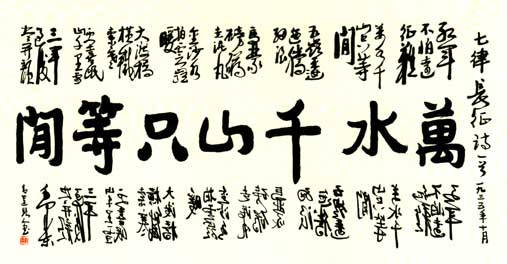 七律 長征 詩一首 一九三五年十月
红军
不怕遠
征難
萬水千
山只等
閒
五嶺逶
迤騰
細浪
烏蒙
磅礴
走泥丸
金沙水
拍雲崖
暖
大渡橋
橫鐵
索寒
更喜岷
山千里雪
三軍
過後
盡開顏
萬水千山只等閒
红军
不怕遠
征難
萬水千
山只等
閒
五嶺逶
迤騰
細浪
烏蒙
磅礴
走泥丸
金沙水
拍雲崖
暖
大渡橋
橫鐵
索寒
更喜岷
山千里雪
三軍
過後
盡開顏